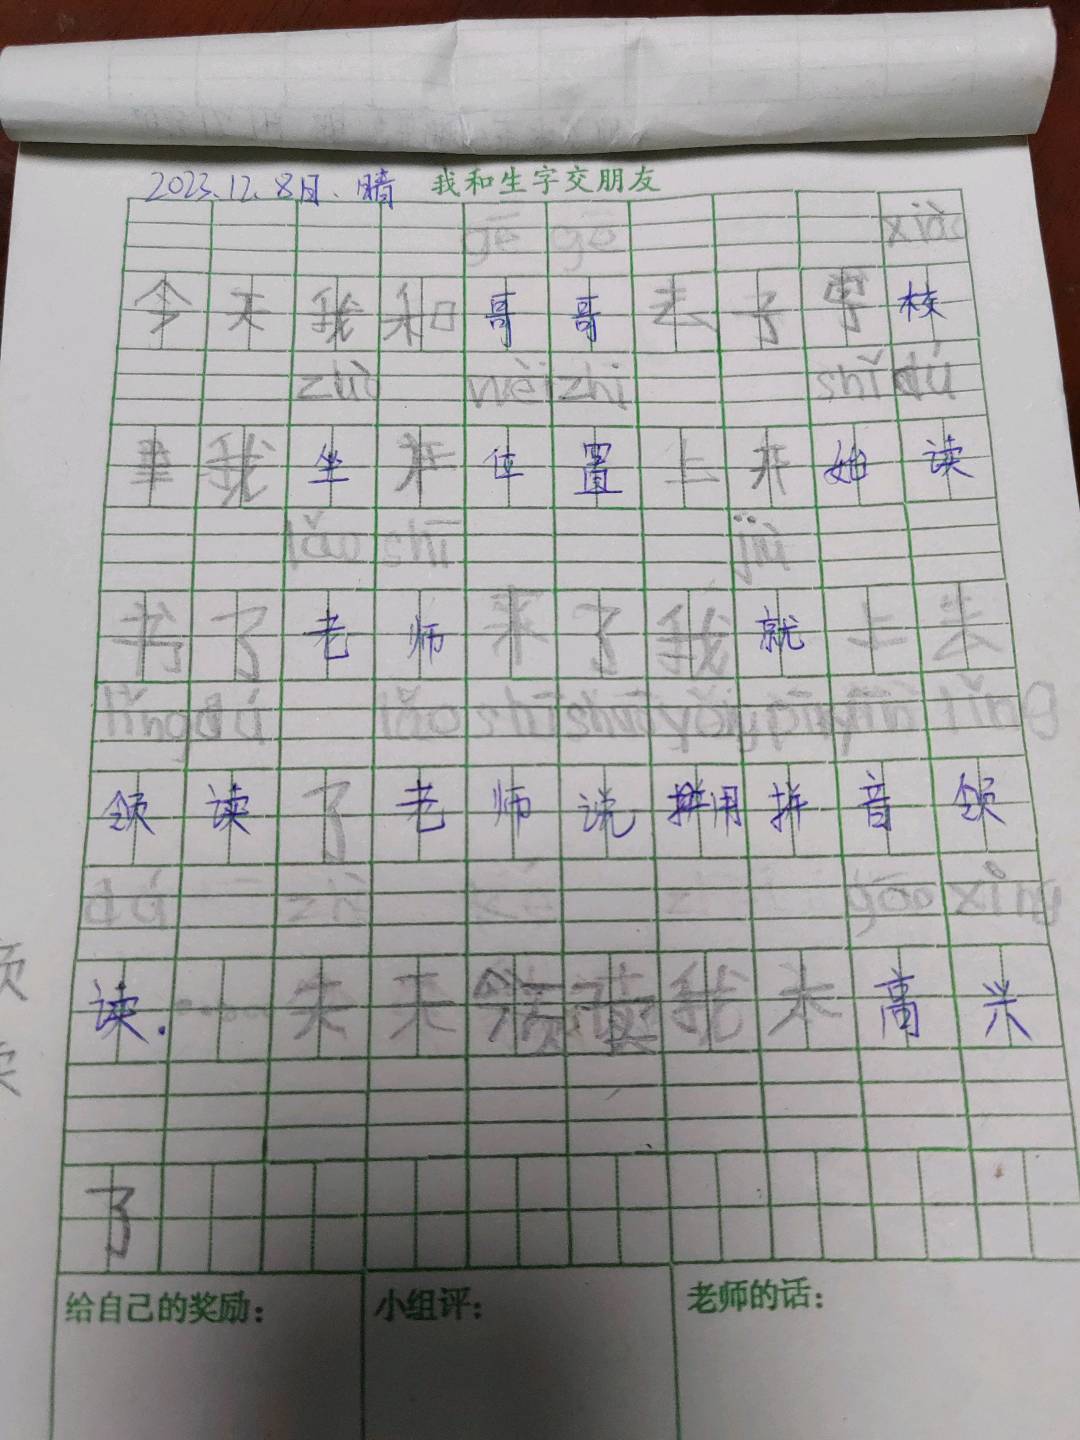 2023.12.8日.晴 我和生字交朋友
gē gē xiào
今天我和哥哥去了学校
zuò wèi zhi shǐ dú
我坐在位置上开始读
lǎo shī jiù
书了老师来了我就上去
lǐng dú lǎo shī shuō yòng pīn yīn lǐng
领读了老师说用拼音领
dú gāo xìng
读.天天领读我太高兴
了
给自己的奖励:
小组评:
老师的话: